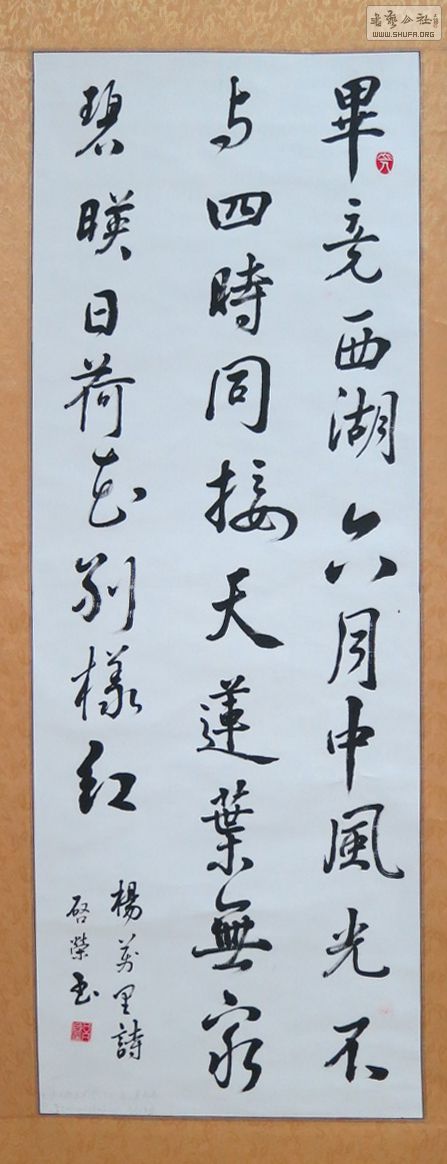 書藝公社
WWW.SHUFA.ORG
畢竟西湖六月中風光不
与四時同接天蓮葉無窮
碧暎日荷花別樣紅
楊萬里詩
啓榮書